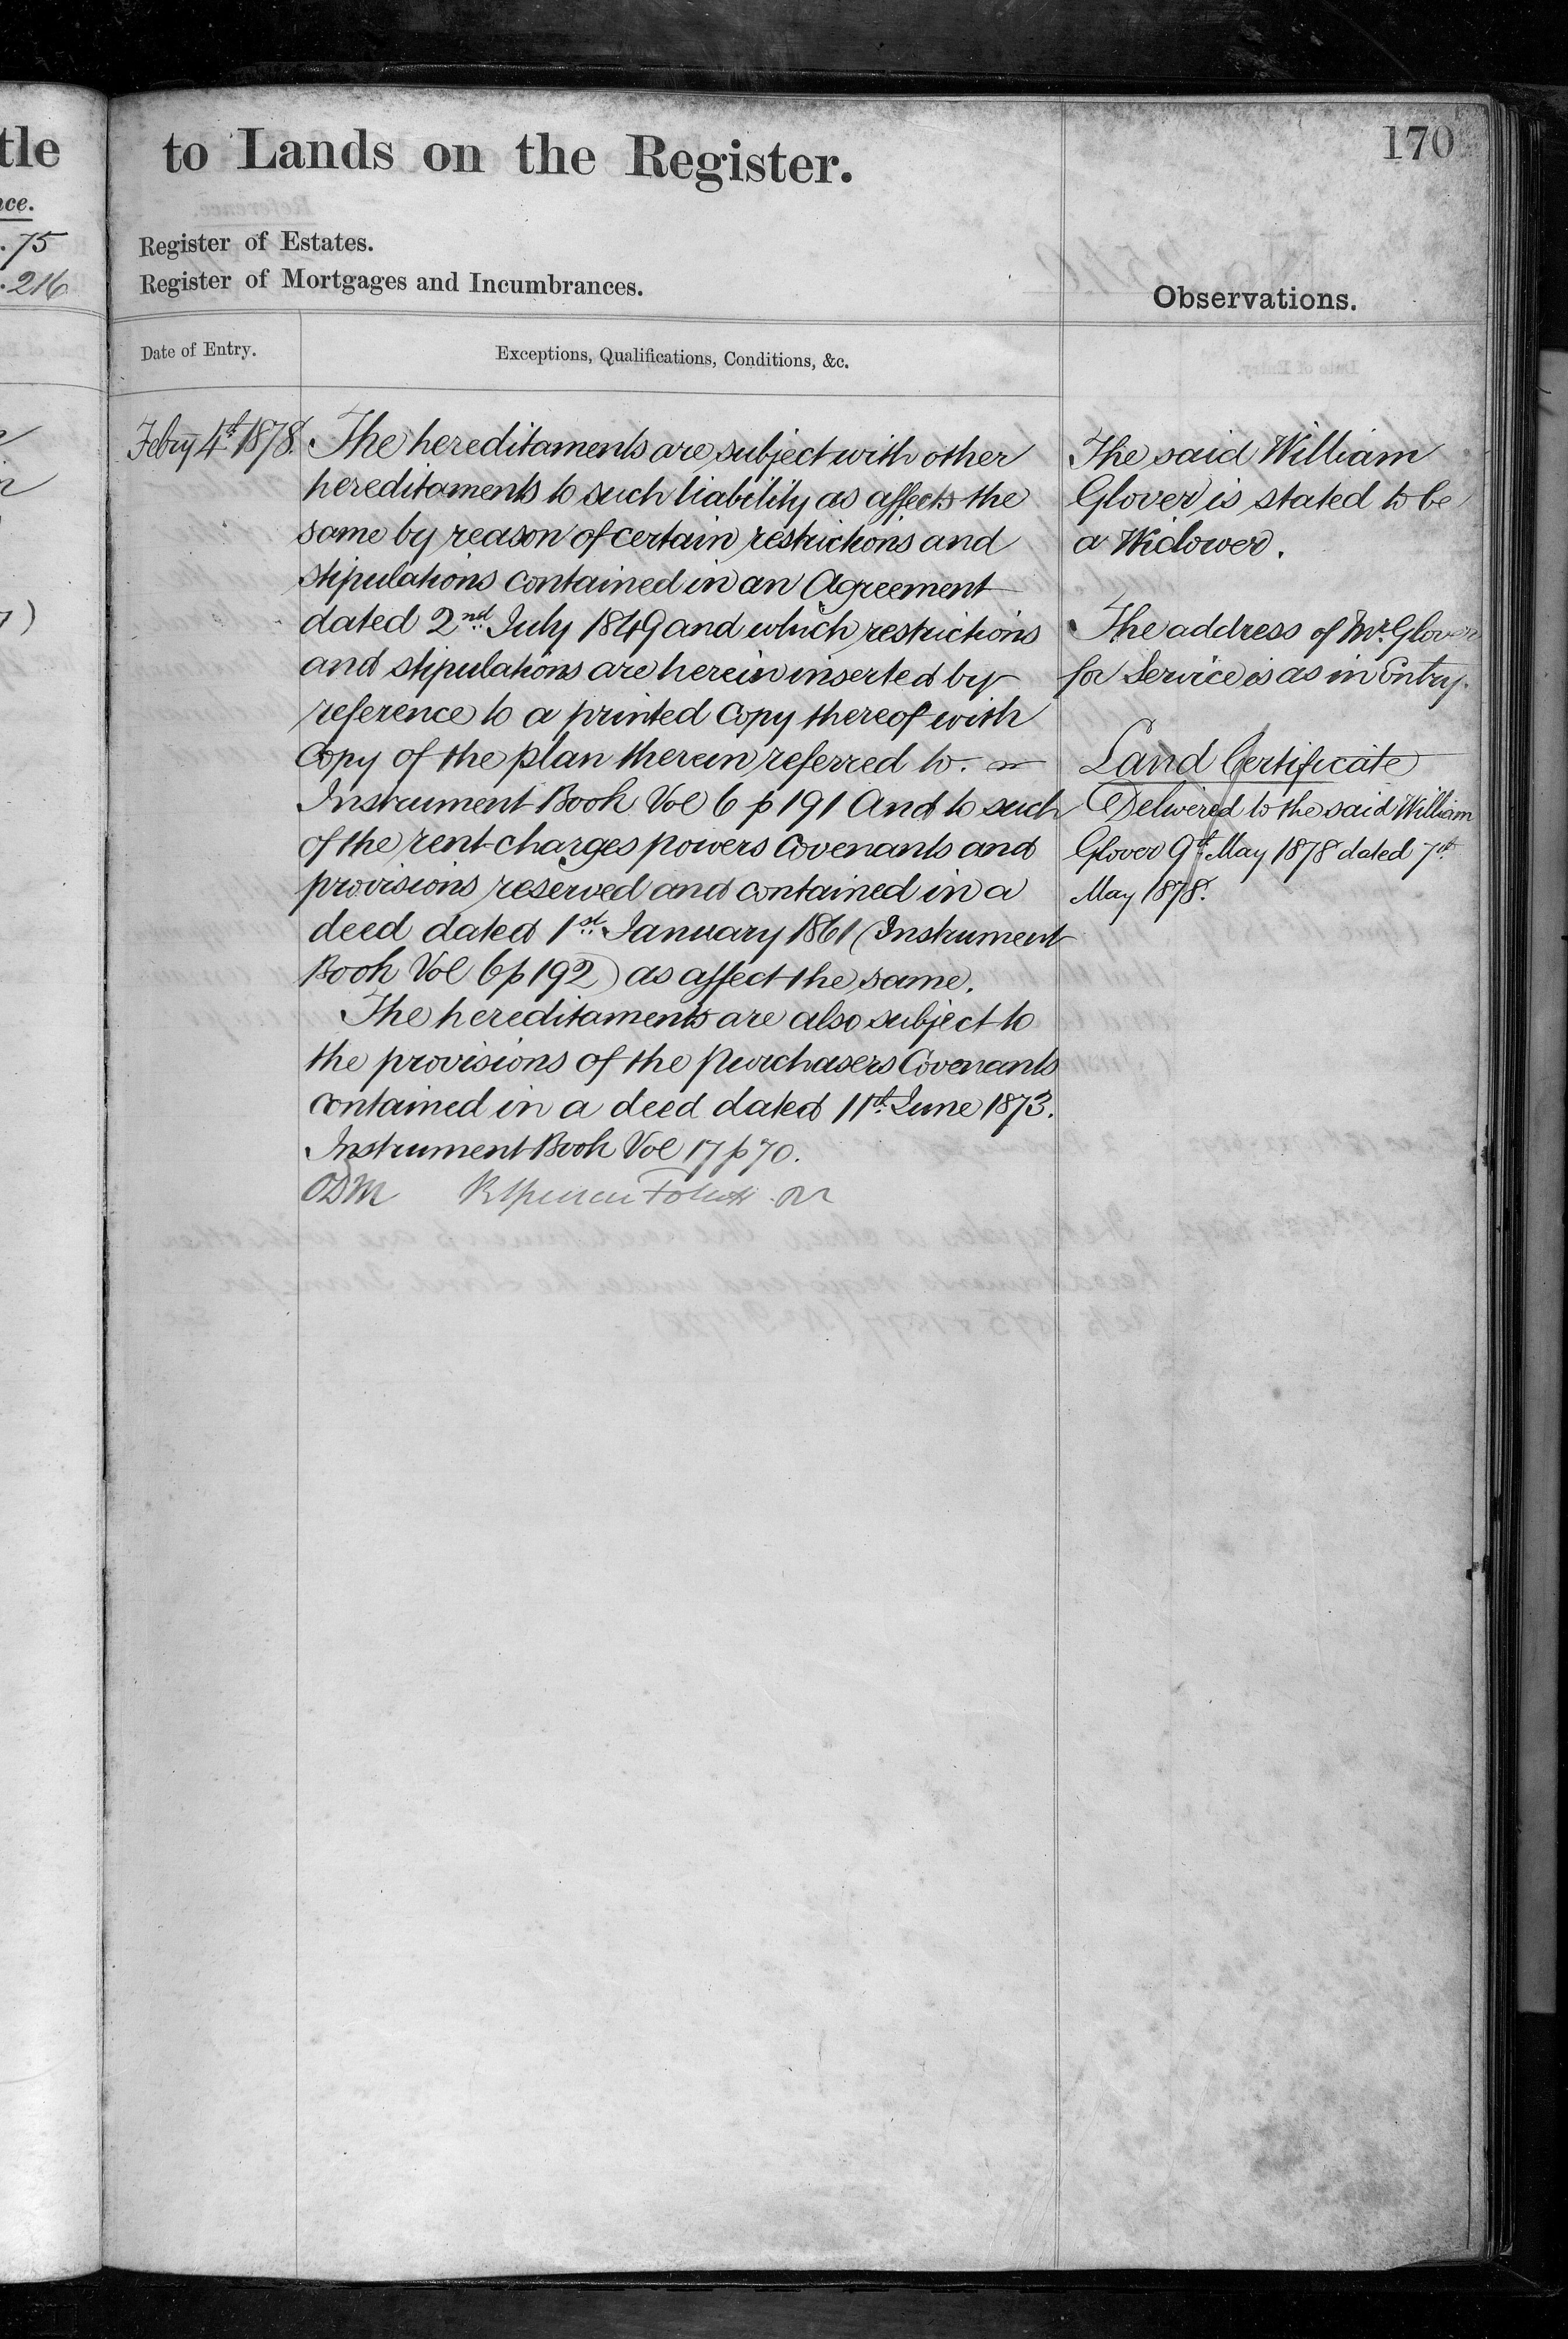 tle
nce.
. 75
. 216
to Lands on the Register.
170
Register of Estates.
Register of Mortgages and Incumbrances.
Observations.
Date of Entry.
Exceptions, Qualifications, Conditions, &c.
Febry 4th 1878.
The hereditaments are subject with other
hereditaments to such liability as affects the
same by reason of certain restrictions and
stipulations contained in an Agreement
dated 2nd July 1849 and which restrictions
and stipulations are herein inserted by
reference to a printed Copy thereof with
Copy of the plan therein referred to. in
Instrument Book Vol 6 p 191 And to such
of the rent-charges powers Covenants and
provisions reserved and contained in a
deed dated 1st January 1861 (Instrument
Book Vol 6 p 192) as affect the same.
The hereditaments are also subject to
the provisions of the Purchasers Covenants
contained in a deed dated 11th June 1873.
Instrument Book Vol 17 p 70.
The said William
Glover is stated to be
a Widower.
The address of Mr. Glover
for Service is as in Entry.
Land Certificate
Delivered to the said William
Glover 9th May 1878 dated 7th
May 1878.